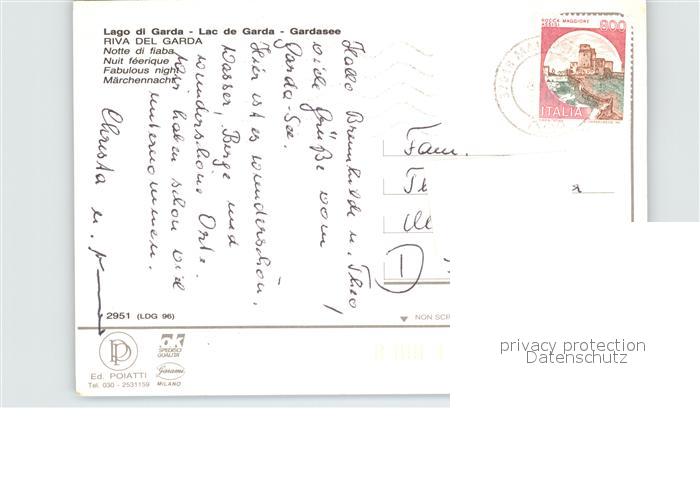 Lago di Garda - Lac de Garda - Gardasee
RIVA DEL GARDA
Notte di fiaba
Nuit féerique
Fabulous night
Märchennacht
Hallo Brunhilde u. Theo,
viele Grüße vom
Garda-See.
Hier ist es wunderschön.
Wasser, Berge und
wunderschöne Orte.
Wir haben schon viel
unternommen.
Christa u.
ROCCA MAGGIORE
ASSISI
800
ITALIA
Fam.
D
2951 (LDG 96)
NON SCR
Ed. POIATTI
Tel. 030 - 2531159
SPEDISCI
QUALITÀ
Garami
MILANO
privacy protection
Datenschutz